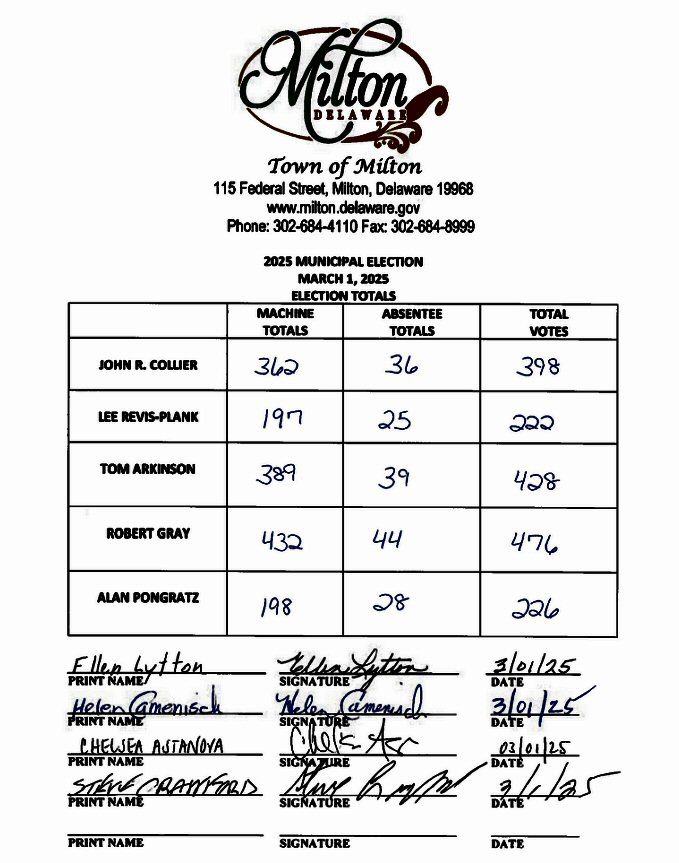 Milton
DELAWARE
Town of Milton
115 Federal Street, Milton, Delaware 19968
www.milton.delaware.gov
Phone: 302-684-4110 Fax: 302-684-8999
2025 MUNICIPAL ELECTION
MARCH 1, 2025
ELECTION TOTALS
MACHINE TOTALS ABSENTEE TOTALS TOTAL VOTES
JOHN R. COLLIER 362 36 398
LEE REVIS-PLANK 197 25 222
TOM ARKINSON 389 39 428
ROBERT GRAY 432 44 476
ALAN PONGRATZ 198 28 226
Ellen Lytton Ellen Lytton 3/01/25
PRINT NAME SIGNATURE DATE
Helen Camenisch Helen Camenisch 3/01/25
PRINT NAME SIGNATURE DATE
CHELSEA ASTANOVA 03/01/25
PRINT NAME SIGNATURE DATE
STEVE CRAWFORD 3/1/25
PRINT NAME SIGNATURE DATE
PRINT NAME SIGNATURE DATE